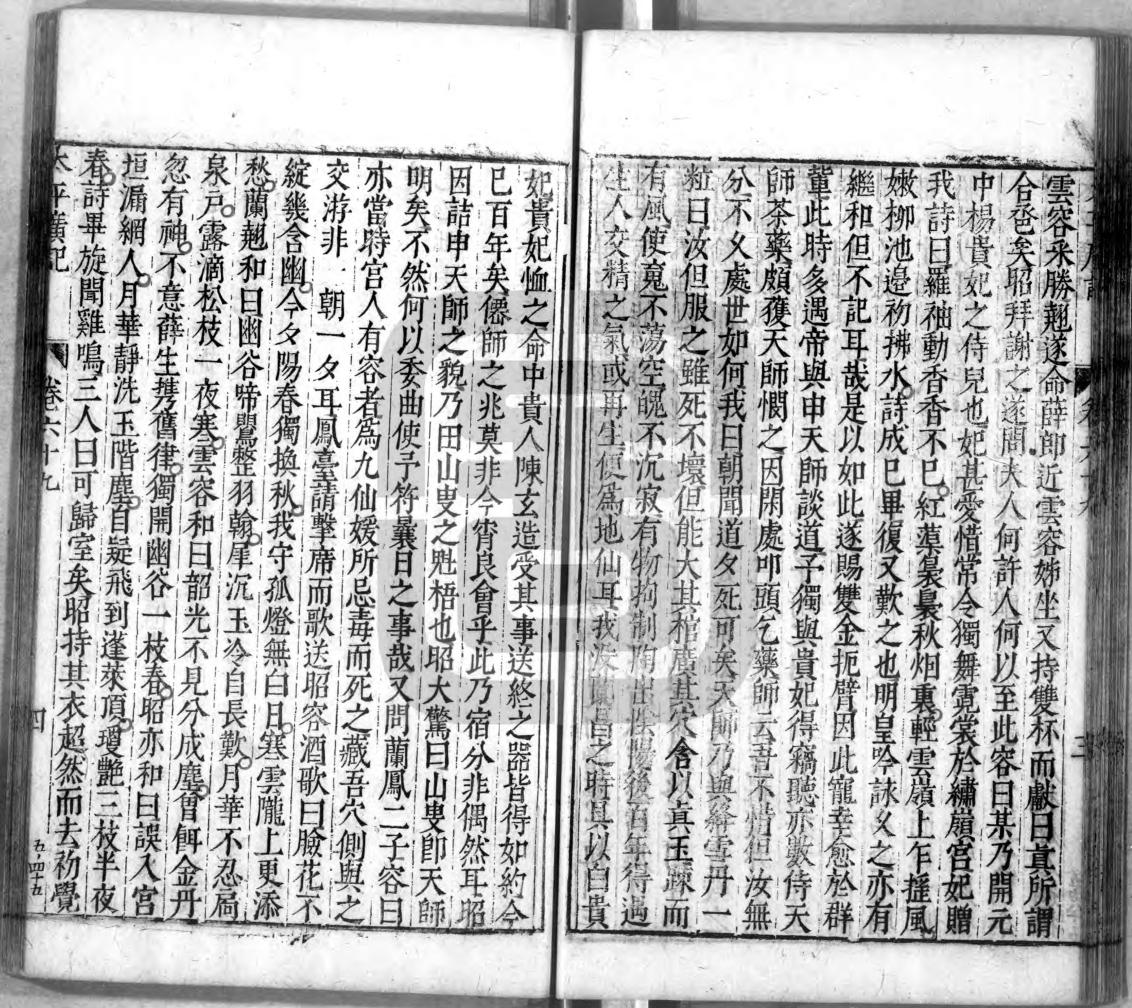 雲容采勝翹遂命薛郎近雲容姊坐又持雙杯而獻曰眞所謂
合巹矣昭拜謝之遂問夫人何許人何以至此容曰某乃開元
中楊貴妃之侍兒也妃甚愛惜常令獨舞霓裳於繡嶺宮妃贈
我詩曰羅袖動香香不已紅蕖裊裊秋烟裏輕雲嶺上乍搖風
嫩柳池邊初拂水詩成已畢復又歎之也明皇吟詠久之亦有
繼和但不記耳哉是以如此遂賜雙金扼臂因此寵幸愈於群
輩此時多遇帝與申天師談道子獨與貴妃得竊聽亦數侍天
師茶藥頗獲天師憫之因閑處叩頭乞藥師云吾不惜但汝無
分不久處世如何我曰朝聞道夕死可矣天師乃與絳雪丹一
粒曰汝但服之雖死不壞但能大其棺廣其穴含以眞玉疎而
有風使䰟不蕩空魄不沉寂有物拘制陶出陰陽後百年得遇
生人交精之氣或再生便爲地仙耳我沒蘭昌之時具以白貴
妃貴妃恤之命中貴人陳玄造受其事送終之器皆得如約今
已百年矣僊師之兆莫非今宵良會乎此乃宿分非偶然耳昭
因詰申天師之貌乃田山叟之魁梧也昭大驚曰山叟卽天師
明矣不然何以委曲使予符曩日之事哉又問蘭鳳二子容曰
亦當時宮人有容者爲九仙媛所忌毒而死之藏吾穴側與之
交游非一朝一夕耳鳳臺請擊席而歌送昭容酒歌曰臉花不
綻幾含幽今夕陽春獨換秋我守孤燈無白日寒雲隴上更添
愁蘭翹和曰幽谷啼鸎整羽翰犀沉玉冷自長歎月華不忍扃
泉戸露滴松枝一夜寒雲容和曰韶光不見分成塵曾餌金丹
忽有神不意薛生携舊律獨開幽谷一枝春昭亦和曰誤入宮
垣漏網人月華靜洗玉階塵自疑飛到蓬萊頂瓊艷三枝半夜
春詩畢旋聞雞鳴三人曰可歸室矣昭持其衣超然而去初覺
太平廣記
卷六十九
四
五·四十五
三